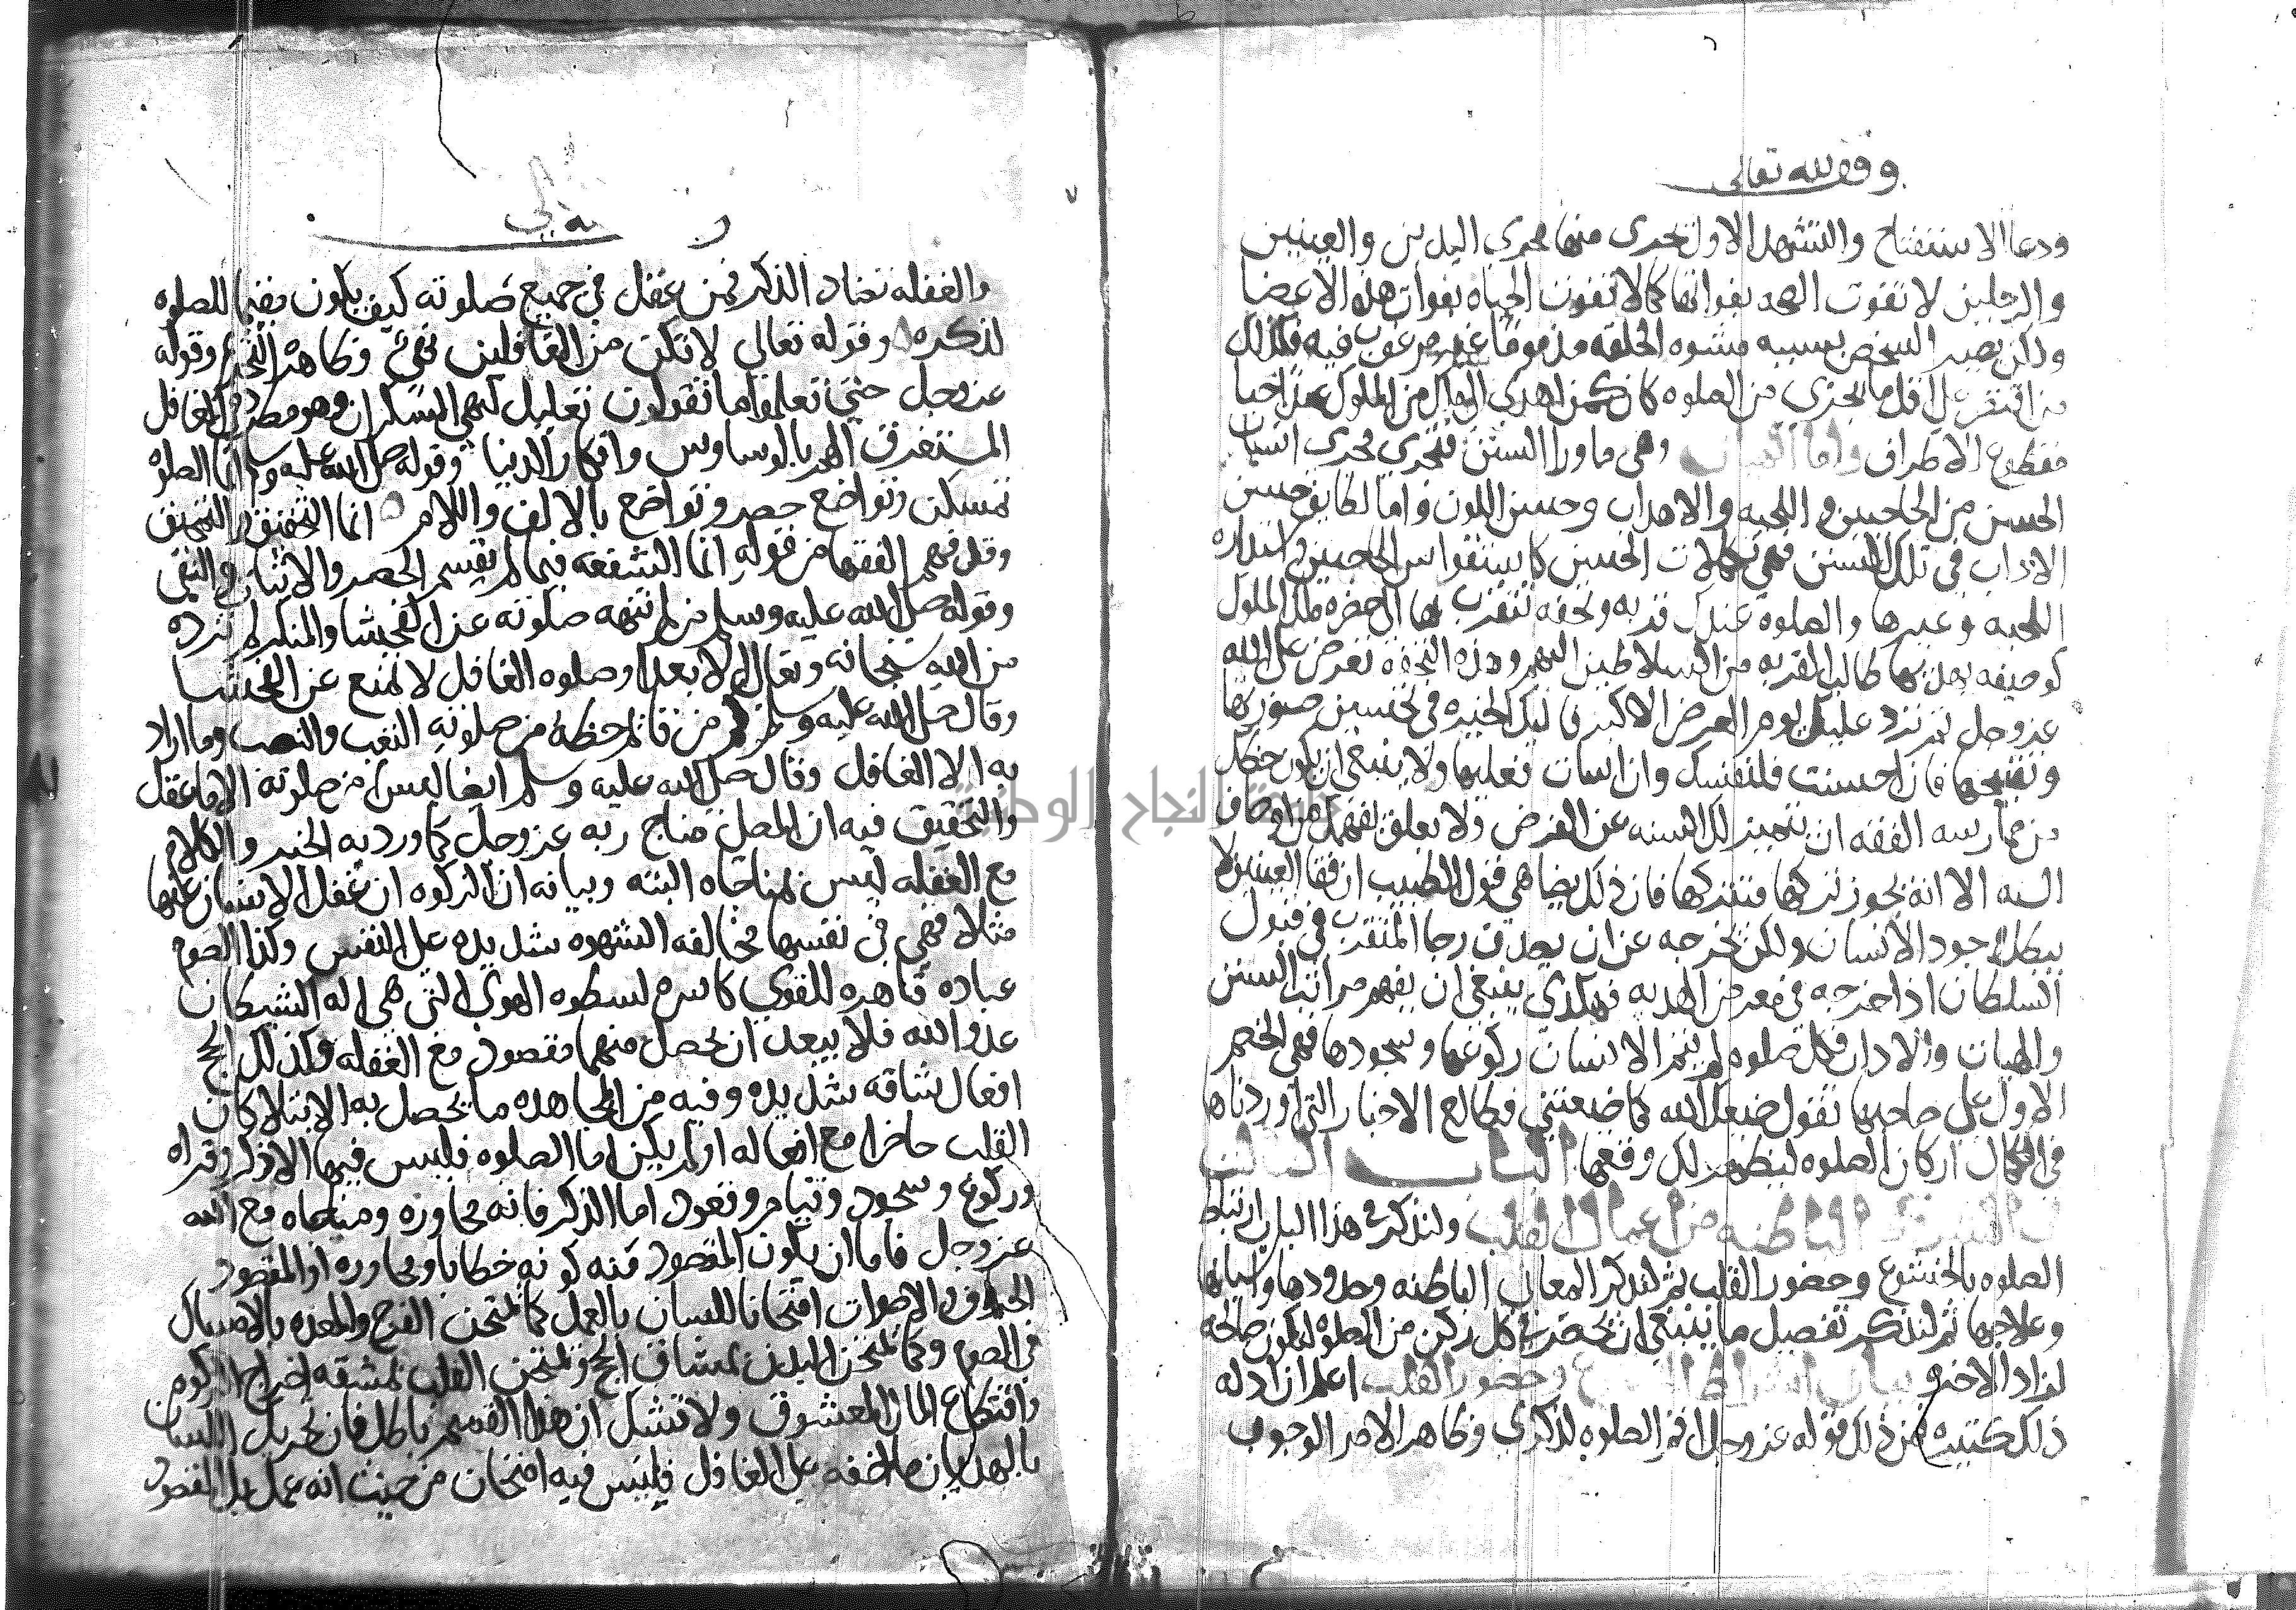 وقف لله تعالى
ودعا الاستفتاح والتشهد الاول تجرى منها مجرى اليدين والعينين
والرجلين لا تفوت الصحه بفواتها كما لا تفوت الحياه بفوات هذه الاعضا
ولكن يصير الشخص بسببه مشوه الخلقه مذموما غير مرغوب فيه فكذلك
من اقتصر على اقل ما يجزى من الصلوه كان كمن اهدى الى ملك من الملوك عبدا حيا
مقطوع الاطراف واما الهيات وهى ما ورا السنن فتجرى مجرى اسباب
الحسن من الحاجبين و اللحيه والاهداب وحسن اللون واما لطايف حسن
الاداب فى تلك السنن فهى مكملات الحسن كاستقواس الحاجبين واستداره
اللحيه وغيرها والصلوه عندك قربه وتحفه تتقرب بها الى حضره ملك الملوك
كوصيفه يهديها طالب القربه من السلاطين اليهم وهذه التحفة تعرض على الله
عز وجل ثم ترد عليك يوم العرض الاكبر فاليك الخيره فى تحسين صورتها
وتقبيحها فان احسنت فلنفسك وان اسات فعليها ولا ينبغى ان يكون حظك
من ممارسه الفقه ان يتميز لك السنه عن الفرض ولا يعلق بفهمك من اوصاف
السنه الا انه يجوز تركها فتتركها فان ذلك يضاهى قول الطبيب ان فقا العينين لا
يبطل وجود الانسان ولكن يخرجه عن ان يصدق رجا المتقرب فى قبول
السلطان اذا اخرجه فى معرض الهديه فهكذى ينبغى ان يفهم مراتب السنن
والهيات والاداب فكل صلوه لم يتم الانسان ركوعها وسجودها فهى الخصم
الاول على صاحبها تقول ضيعك الله كما ضيعتنى فطالع الاخبار التى اوردناها
فى اكمال اركان الصلوه ليظهر لك وقعها الباب الثالث
فى الشروط الباطنه من اعمال القلب ولنذكر فى هذا الباب ارتباط
الصلوه بالخشوع وحضور القلب ثم لنذكر المعانى الباطنه وحدودها واسبابها
وعلاجها ثم لنذكر تفصيل ما ينبغى ان يحضر فى كل ركن من الصلوه لتكون صالحه
لزاد الاخره بيان اشتراط الخشوع وحضور القلب اعلم ان ادله
ذلك كثيره فمن ذلك قوله عز وجل اقم الصلوه لذكرى وظاهر الامر الوجوب
والغفله تضاد الذكر فمن غفل فى جميع صلوته كيف يكون مقيما للصلوه
لذكره وقوله تعالى لا تكن من الغافلين نهى وظاهره التحريم وقوله
عز وجل حتى تعلموا ما تقولون تعليل لنهى السكران وهو مطرد فى الغافل
المستغرق الهم بالوساوس وافكار الدنيا وقوله صلى الله عليه وسلم انما الصلوه
تمسكن وتواضع حصر وتواضع بالالف واللام انما التحقيق والتمحيق
وقد فهم الفقها من قوله انما الشفعه فيما لم يقسم الحصر والاثبات والنفى
وقوله صلى الله عليه وسلم من لم تنهه صلوته عن الفحشا والمنكر لم تزده
من الله سبحانه وتعالى الا بعدا وصلوه الغافل لا تمنع عن الفحشا
وقال صلى الله عليه وسلم كم من قائم حظه من صلوته التعب والنصب وما اراد
به الا الغافل وقال صلى الله عليه وسلم ايضا ليس من صلوته الا ما عقل
والتحقيق فيه ان المصلى مناج ربه عز وجل كما ورد به الخبر والكلام
مع الغفله ليس بمناجاه البته وبيانه ان الزكوه ان غفل الانسان عنها
مثلا فهى فى نفسها مخالفه الشهوه شديده على النفس وكذا الصوم
عباده قاهره للقوى كاسره لسطوه الهوى التى هى اله الشيطان
عدو الله فلا يبعد ان يحصل منهما مقصود مع الغفله وكذلك الحج
افعال شاقه شديده وفيه من المجاهده ما يحصل به الابتلا كان
القلب حاضرا مع افعاله او لم يكن اما الصلوه فليس فيها الا ذكر وقراه
وركوع وسجود وقيام وقعود اما الذكر فانه محاوره ومناجاه مع الله
عز وجل فاما ان يكون المقصود منه كونه خطابا ومحاوره او المقصود
الحروف والاصوات امتحانا للسان بالعمل كما تمتحن الفرج والمعده بالامساك
فى الصوم وكما تمتحن البدن بمشاق الحج وتمتحن القلب بمشقه اخراج الزكوه
واقتطاع المال المعشوق ولا تشك ان هذا القسم باطل فان تحريك اللسان
بالهذيان ما اخفه على الغافل فليس فيه امتحان من حيث انه عمل بل المقصود